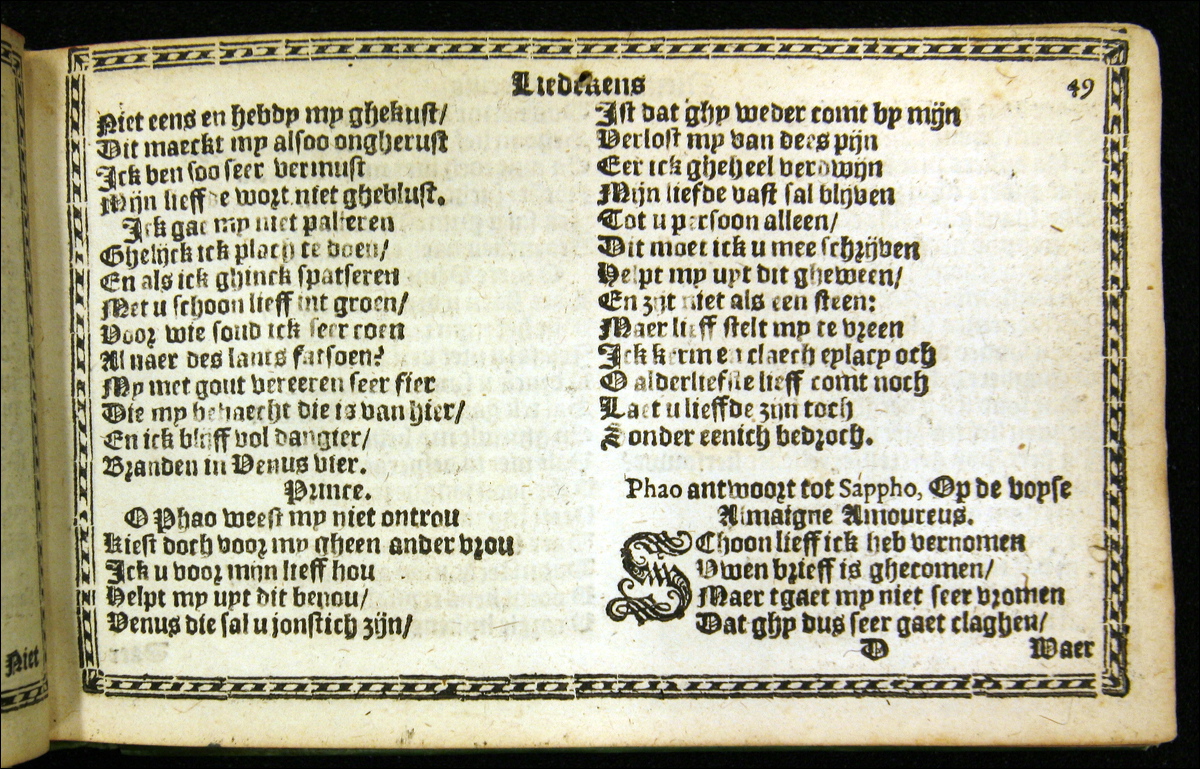 Liedekens
49
Niet eens en hebdy my ghekust/
Dit maeckt my alsoo ongherust
Ick ben soo seer vermust
Mijn lieffde wort niet gheblust.
Ick gae my niet palieren
Ghelijck ick plach te doen/
En als ick ghinck spatseren
Met u schoon lieff int groen/
Voor wie soud ick seer coen
Al naer des lants fatsoen?
My met gout vereeren seer fier
Die my behaecht die is van hier/
En ick blijff vol dangier/
Branden in Venus vier.
Prince.
O Phao weest my niet ontrou
Kiest doch voor my gheen ander vrou
Ick u voor mijn lieff hou
Helpt my uyt dit benou/
Venus die sal u jonstich zijn/
Ist dat ghy weder comt by mijn
Verlost my van dees pijn
Eer ick gheheel verdwijn
Mijn liefde vast sal blijven
Tot u persoon alleen/
Dit moet ick u mee schrijven
Helpt my uyt dit gheween/
En zijt niet als een steen:
Maer lieff stelt my te vreen
Ick kerm en claech eylacy och
O alderliefste lieff comt noch
Laet u lieffde zijn toch
Sonder eenich bedroch.
Phao antwoort tot Sappho, Op de voyse
Almaigne Amoureus.
SChoon lieff ick heb vernomen
Uwen brieff is ghecomen/
Maer tgaet my niet seer vromen
Dat ghy dus seer gaet claghen/
D
Waer
Niet